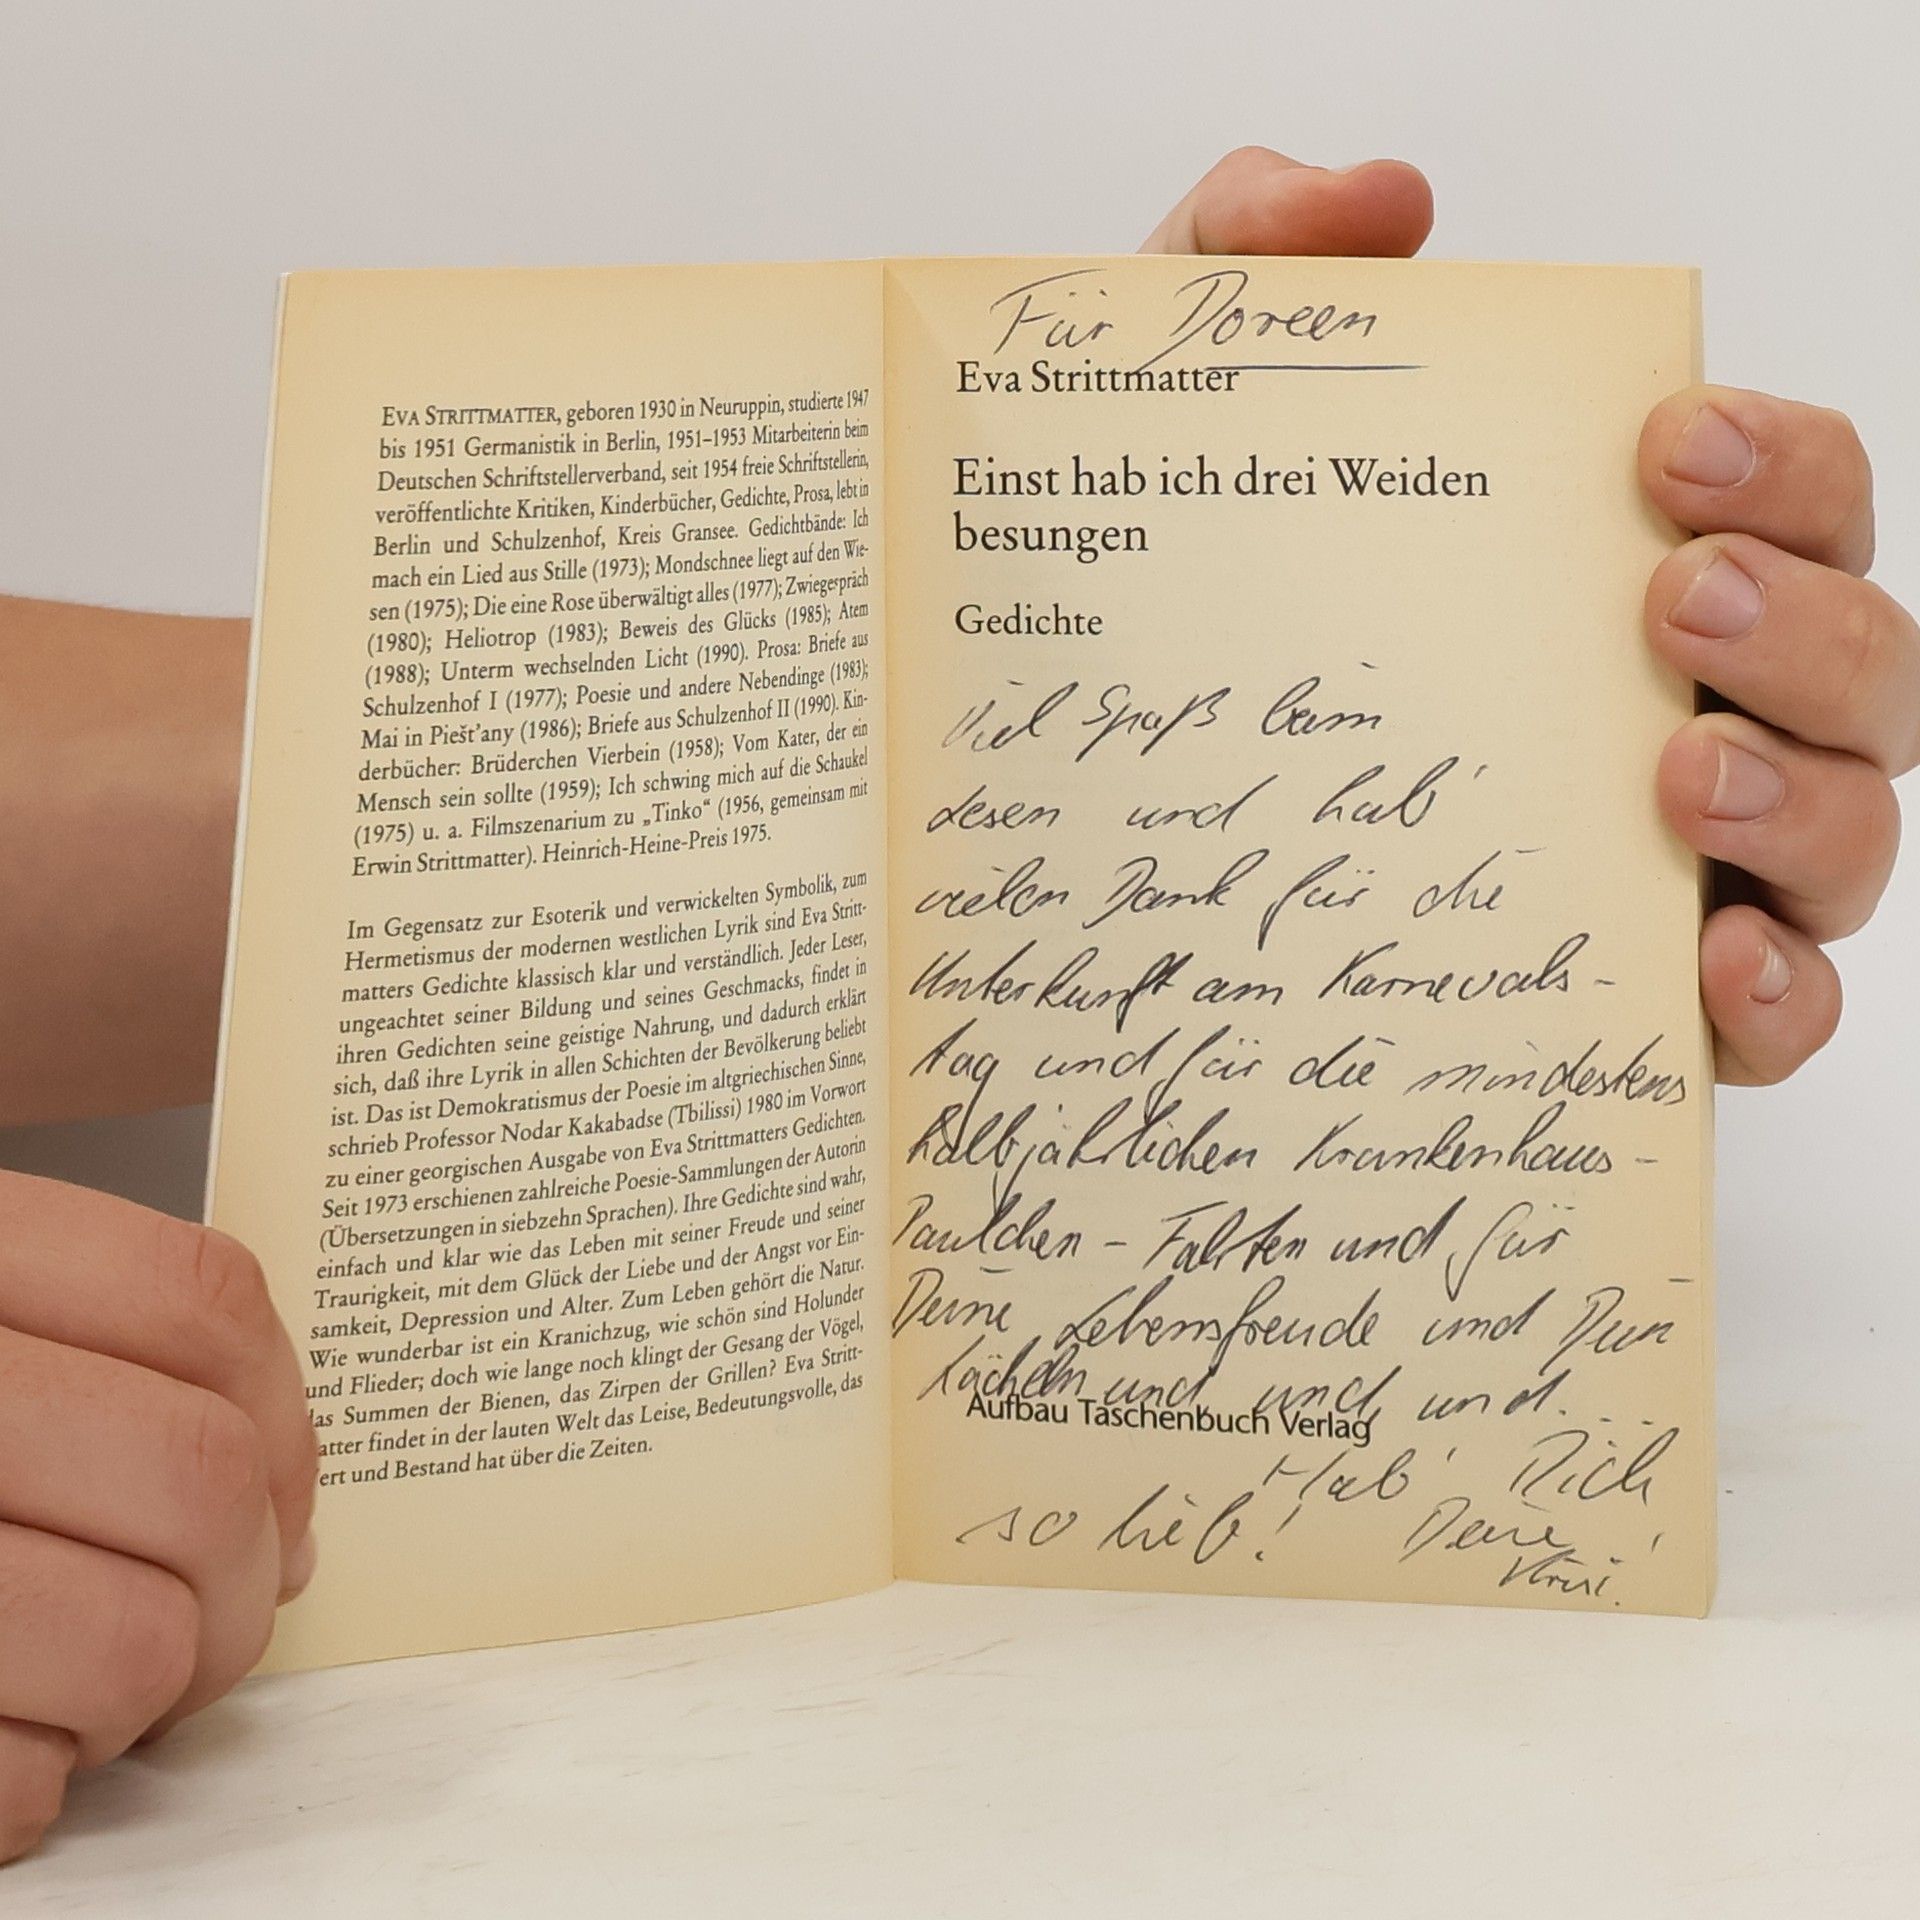 EVA STRITTMATTER, geboren 1930 in Neuruppin, studierte 1947
bis 1951 Germanistik in Berlin, 1951–1953 Mitarbeiterin beim
Deutschen Schriftstellerverband, seit 1954 freie Schriftstellerin,
veröffentlichte Kritiken, Kinderbücher, Gedichte, Prosa, lebt in
Berlin und Schulzenhof, Kreis Gransee. Gedichtbände: Ich
mach ein Lied aus Stille (1973); Mondschnee liegt auf den Wie-
sen (1975); Die eine Rose überwältigt alles (1977); Zwiegespräch
(1980); Heliotrop (1983); Beweis des Glücks (1985); Atem
(1988); Unterm wechselnden Licht (1990). Prosa: Briefe aus
Schulzenhof I (1977); Poesie und andere Nebendinge (1983);
Mai in Piešt’any (1986); Briefe aus Schulzenhof II (1990). Kin-
derbücher: Brüderchen Vierbein (1958); Vom Kater, der ein
Mensch sein sollte (1959); Ich schwing mich auf die Schaukel
(1975) u. a. Filmszenarium zu „Tinko“ (1956, gemeinsam mit
Erwin Strittmatter). Heinrich-Heine-Preis 1975.
Im Gegensatz zur Esoterik und verwickelten Symbolik, zum
Hermetismus der modernen westlichen Lyrik sind Eva Stritt-
matters Gedichte klassisch klar und verständlich. Jeder Leser,
ungeachtet seiner Bildung und seines Geschmacks, findet in
ihren Gedichten seine geistige Nahrung, und dadurch erklärt
sich, daß ihre Lyrik in allen Schichten der Bevölkerung beliebt
ist. Das ist Demokratismus der Poesie im altgriechischen Sinne,
schrieb Professor Nodar Kakabadse (Tbilissi) 1980 im Vorwort
zu einer georgischen Ausgabe von Eva Strittmatters Gedichten.
Seit 1973 erschienen zahlreiche Poesie-Sammlungen der Autorin
(Übersetzungen in siebzehn Sprachen). Ihre Gedichte sind wahr,
einfach und klar wie das Leben mit seiner Freude und seiner
Traurigkeit, mit dem Glück der Liebe und der Angst vor Ein-
samkeit, Depression und Alter. Zum Leben gehört die Natur.
Wie wunderbar ist ein Kranichzug, wie schön sind Holunder
und Flieder; doch wie lange noch klingt der Gesang der Vögel,
das Summen der Bienen, das Zirpen der Grillen? Eva Stritt-
atter findet in der lauten Welt das Leise, Bedeutungsvolle, das
ert und Bestand hat über die Zeiten.
Für Doreen
Eva Strittmatter
Einst hab ich drei Weiden
besungen
Gedichte
Viel Spaß beim
Lesen und hab'
vielen Dank für die
Unterkunft am Karnevals-
tag und für die mindestens
halbjährlichen Krankenhaus-
Paulchen-Fahrten und für
Deine Lebensfreude und Dein
Lächeln und, und, und....
Aufbau Taschenbuch Verlag
Hab' Dich
so lieb! Deine